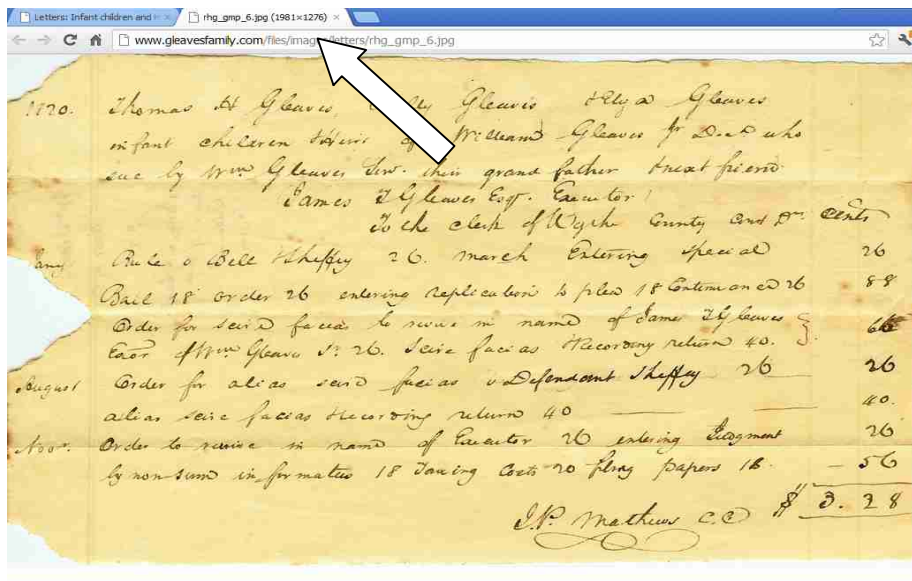 Letters: Infant children and
rhg_gmp_6.jpg (1981×1276)
www.gleavesfamily.com/files/imag letters/rhg_gmp_6.jpg
1820. Thomas H Gleaves, Gleaves Gleaves
infant children & Heirs of William Gleaves Jr Decd who
sue by Wm Gleaves Senr. their grand father & next friend
James T Gleaves Esqr. Executor
To the clerk of Wythe County Court Dr. Cents
Rule v Bell & Sheffey 26. March Entering special 26
Bail 18 order 26 entering replication to plea 18 Continuance 26 88
Order for scire facias to revive in name of James T Gleaves
Exor of Wm Gleaves Sr. 26. Scire facias & Recording return 40. 66
August Order for alias scire facias v Defendant Sheffey 26 26
alias scire facias & recording return 40 40.
Novr. Order to revive in name of Executor 26 entering Judgment 26
by non sum informatus 18 Taxing Costs 20 filing papers 18. 56
$ 3.28
J.P. Mathews C.C